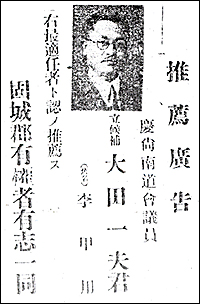 推薦廣告
慶尙南道會議員
立候補 大田一夫君
李甲用
右最適任者ト認ノ推薦ス
固城郡有權者有志一同